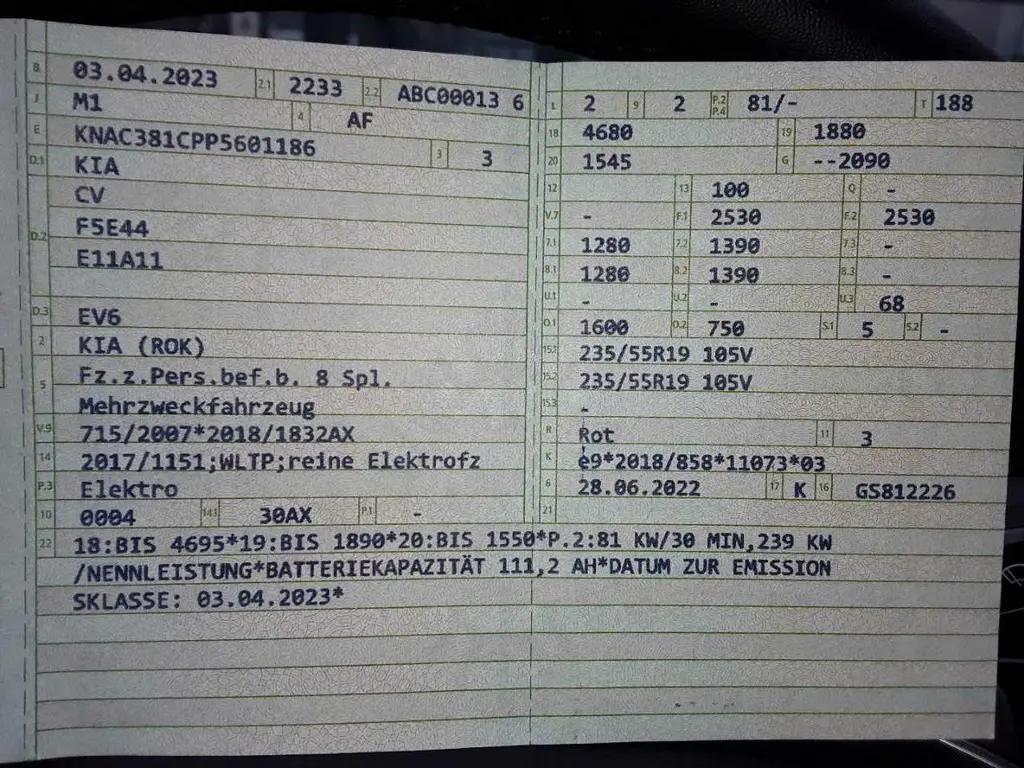 B 03.04.2023 2.1 2233 2.2 ABC00013 6
J M1 4 AF
E KNAC381CPP5601186 3 3
D.1 KIA
CV
D.2 F5E44
E11A11
D.3 EV6
2 KIA (ROK)
5 Fz.z.Pers.bef.b. 8 Spl.
Mehrzweckfahrzeug
V.9 715/2007*2018/1832AX
14 2017/1151;WLTP;reine Elektrofz
P.3 Elektro
10 0004 14.1 30AX P.1 -
L 2 9 2 P.2 P.4 81/- T 188
18 4680 19 1880
20 1545 G --2090
12 13 100 Q -
V.7 - F.1 2530 F.2 2530
7.1 1280 7.2 1390 7.3 -
8.1 1280 8.2 1390 8.3 -
U.1 - U.2 - U.3 68
O.1 1600 O.2 750 S.1 5 S.2 -
15.1 235/55R19 105V
15.2 235/55R19 105V
15.3 -
R Rot 11 3
K e9*2018/858*11073*03
6 28.06.2022 17 K 16 GS812226
21
22 18:BIS 4695*19:BIS 1890*20:BIS 1550*P.2:81 KW/30 MIN,239 KW
/NENNLEISTUNG*BATTERIEKAPAZITÄT 111,2 AH*DATUM ZUR EMISSION
SKLASSE: 03.04.2023*